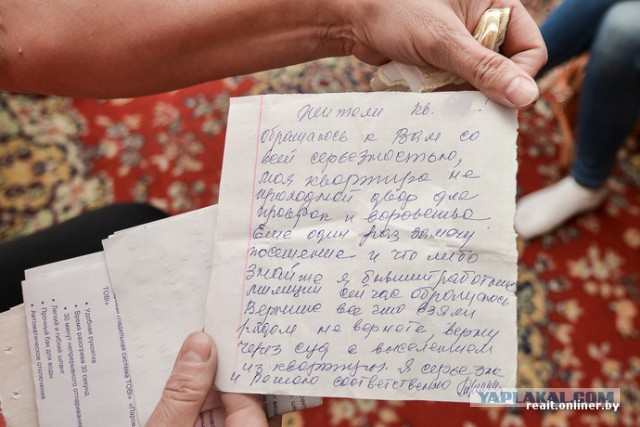 Жители кв.
обращаюсь к Вам со
всей серьезностью,
моя квартира не
проходной двор для
простак и воровства
Еще один раз замечу
посещение и что либо
знайте я бывший работник
милиции сейчас обращаюсь
Верните все что взяли
рядом не вернете верну
через суд с выселением
из квартиры. Я серьезно
и Вашего соответственно
ТОВІ»
гладильная система ТОВІ» «Паров
• Удобная рушечка
• Время разогрева 30 секунд
• 30 минут непрерывного отпаривания
• Легкий и гибкий шланг
• Прочный бак для воды
• Автоматическое отключение
YAPLAKAL.COM
realt.onliner.by